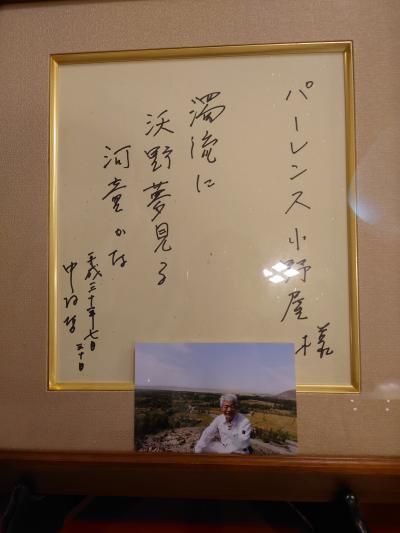 パーレンス小野屋様
濁流に
沃野夢見る
河童かな
平成二十年七月
三十日
中村哲